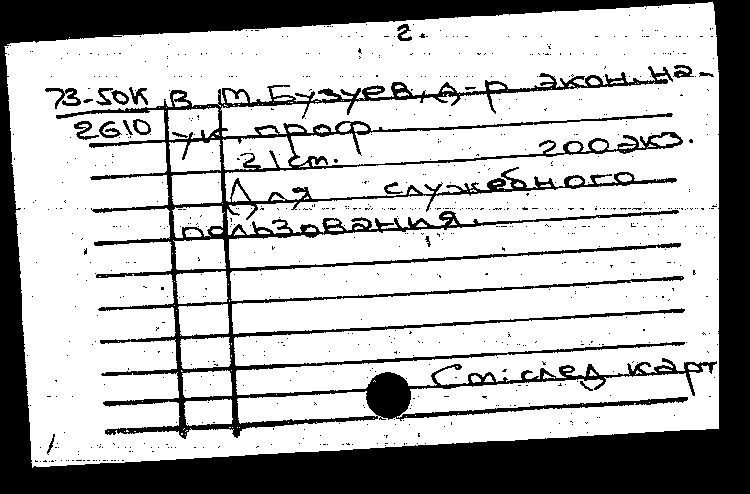 2.
73-50к В. Т. Бузуев, д-р экон. на-
2610 ук, проф.
21 ст. 200 экз.
Для служебного
пользования.
См: след карт